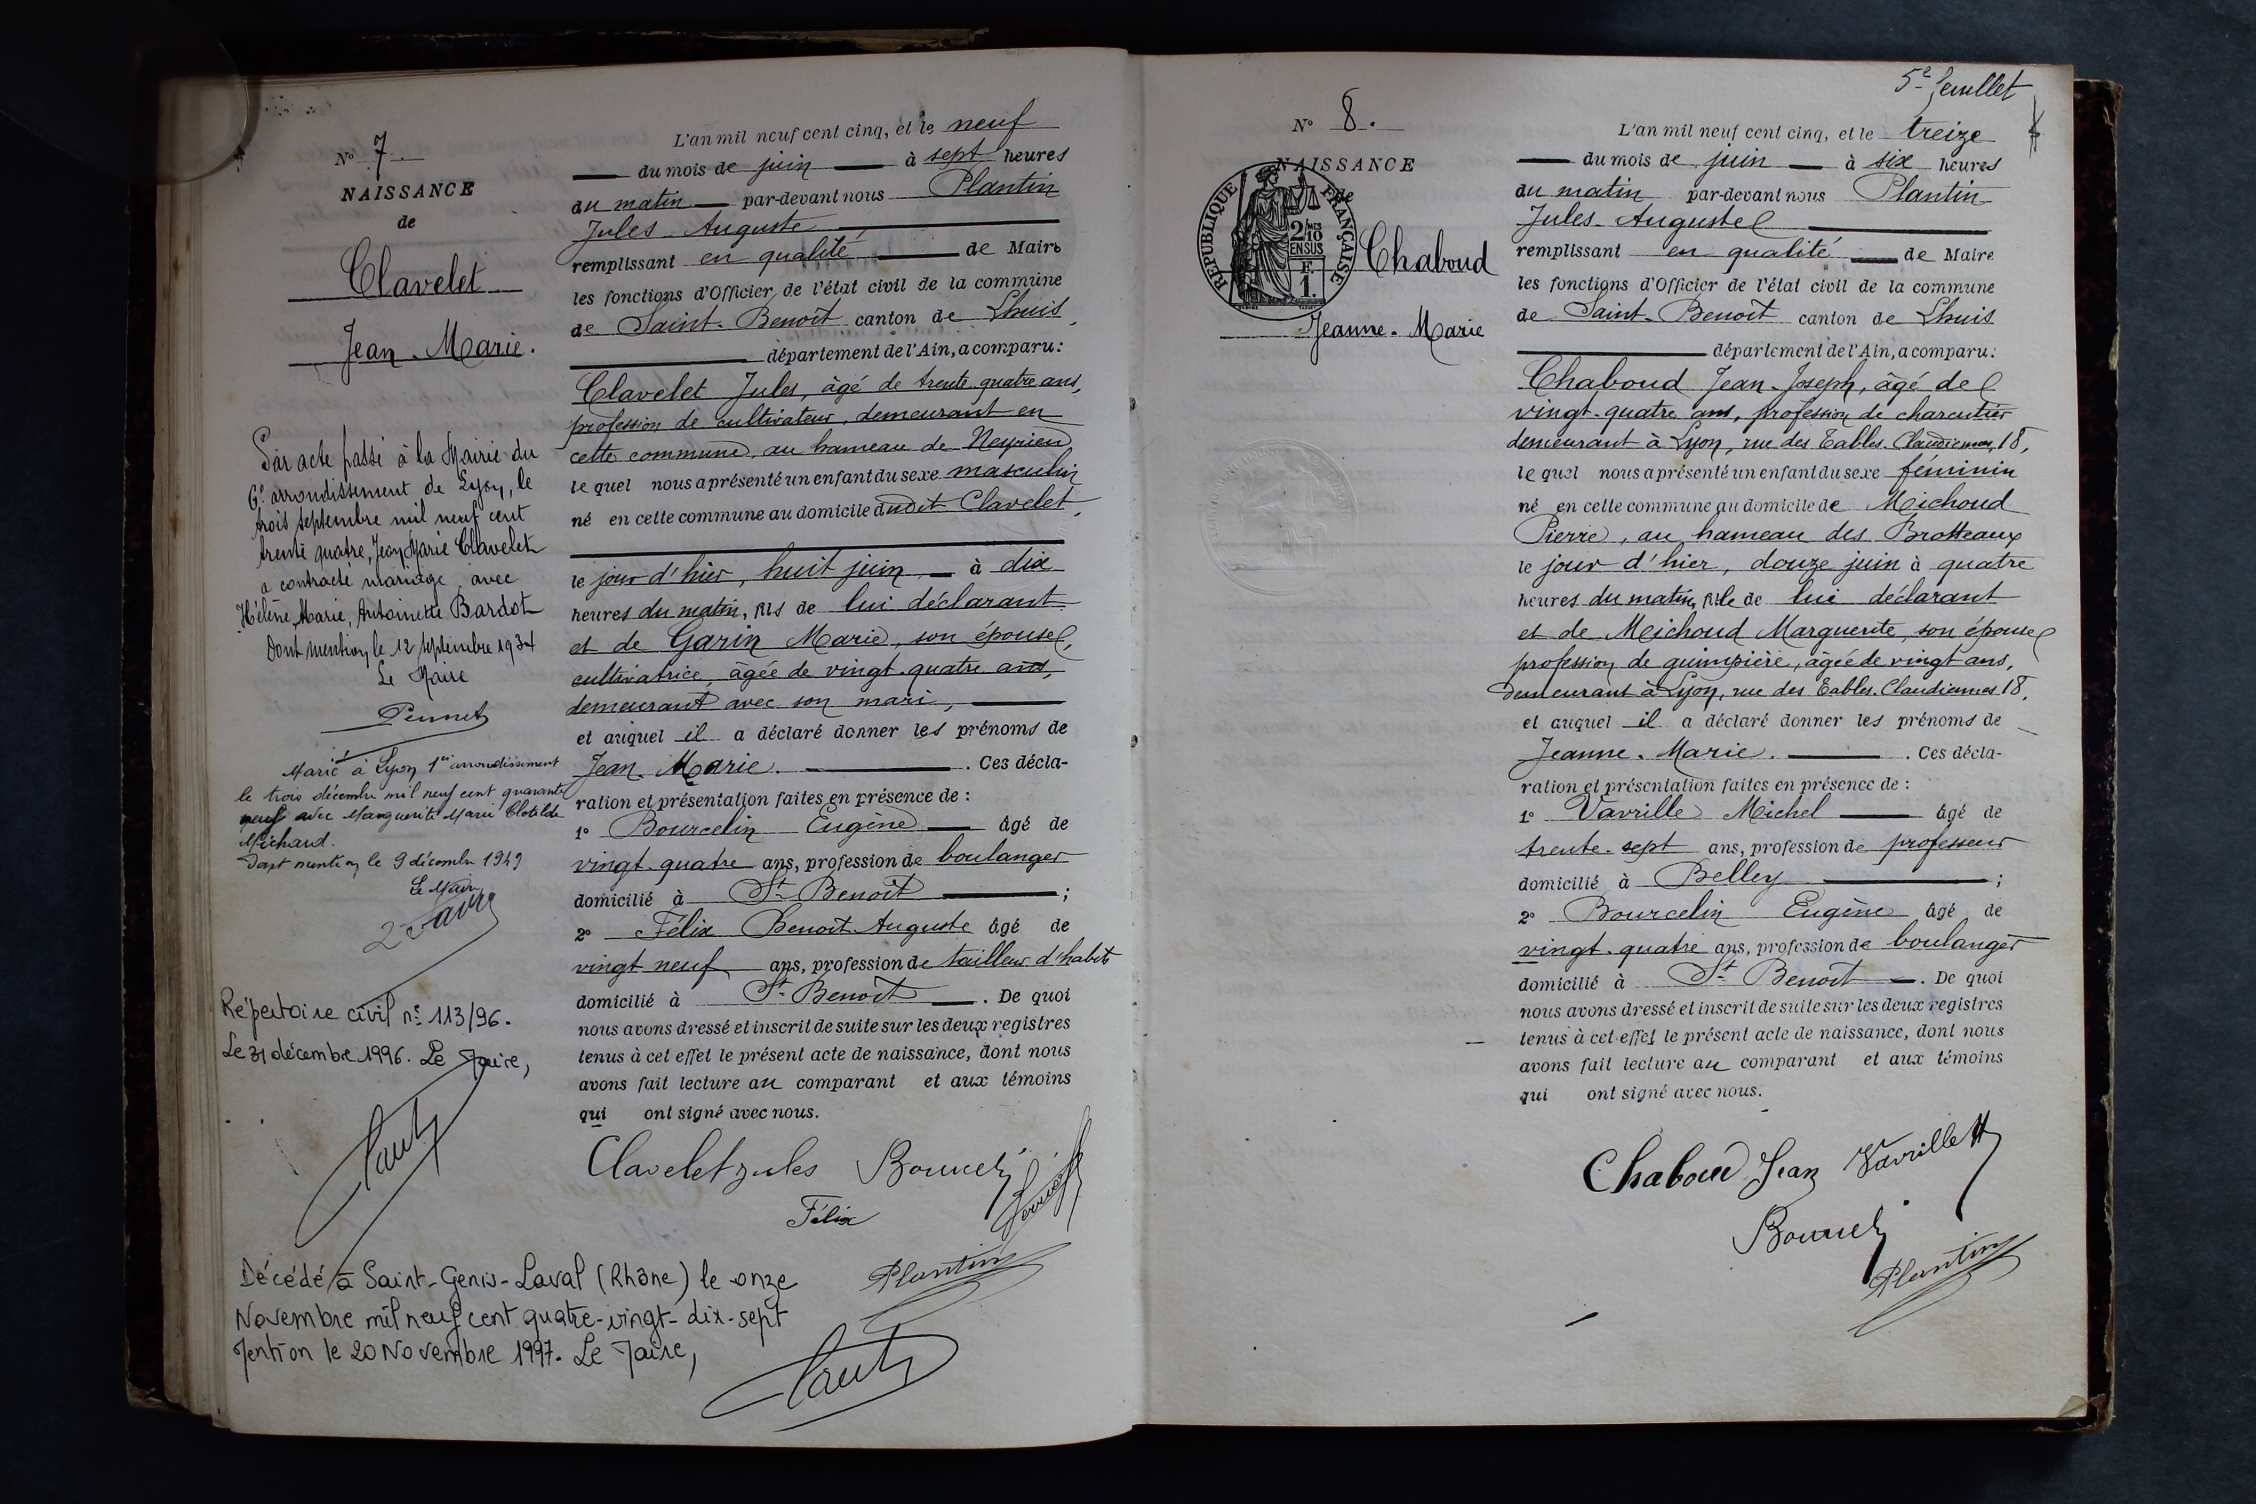 N° 7.
NAISSANCE
de
Clavelet
Jean-Marie.
Par acte passé à la Mairie du
6e arrondissement de Lyon, le
trois septembre mil neuf cent
trente quatre, Jean Marie Clavelet
a contracté mariage avec
Hélène, Marie, Antoinette Bardot
Dont mention, le 12 septembre 1934
Le Maire
Marié à Lyon 1er arrondissement
le trois décembre mil neuf cent quarante
neuf avec Marguerite Marie Clotilde
Michaud.
Dont mention le 9 décembre 1949
Le Maire
Répertoire civil n° 113/96.
Le 31 décembre 1996. Le Maire,
L'an mil neuf cent cinq, et le neuf
du mois de juin à sept heures
du matin par-devant nous Plantin
Jules Auguste
remplissant en qualité de Maire
les fonctions d'Officier de l'état civil de la commune
de Saint-Benoît canton de Lhuis,
département de l'Ain, a comparu:
Clavelet Jules, âgé de trente quatre ans,
profession de cultivateur, demeurant en
cette commune, au hameau de Neyrieu
le quel nous a présenté un enfant du sexe masculin
né en cette commune au domicile dudit Clavelet,
le jour d'hier, huit juin, à dix
heures du matin, fils de lui déclarant
et de Garin Marie, son épouse,
cultivatrice, âgée de vingt-quatre ans,
demeurant avec son mari,
et auquel il a déclaré donner les prénoms de
Jean-Marie. . Ces décla-
ration et présentation faites en présence de :
1° Bourcelin Eugène âgé de
vingt-quatre ans, profession de boulanger
domicilié à St-Benoît ;
2° Félix Benoît-Auguste âgé de
vingt neuf ans, profession de tailleur d'habits
domicilié à St-Benoît . De quoi
nous avons dressé et inscrit de suite sur les deux registres
tenus à cet effet le présent acte de naissance, dont nous
avons fait lecture au comparant et aux témoins
qui ont signé avec nous.
Clavelet Jules
Félix
Plantin
Décédé à Saint-Genis-Laval (Rhône) le onze
Novembre mil neuf cent quatre-vingt-dix-sept
Mention le 20 Novembre 1997. Le Maire,
5e feuillet
N° 8.
NAISSANCE
de
RÉPUBLIQUE FRANÇAISE
2/10MES
EN SUS
F.
1.
Chaboud
Jeanne-Marie
L'an mil neuf cent cinq, et le treize
du mois de juin à six heures
du matin par-devant nous Plantin
Jules-Auguste
remplissant en qualité de Maire
les fonctions d'Officier de l'état civil de la commune
de Saint-Benoît canton de Lhuis
département de l'Ain, a comparu:
Chaboud Jean-Joseph, âgé de
vingt-quatre ans, profession de charcutier
demeurant à Lyon, rue des Tables-Claudiennes, 18,
le quel nous a présenté un enfant du sexe féminin
né en cette commune au domicile de Michoud
Pierre, au hameau des Brotteaux
le jour d'hier, douze juin à quatre
heures du matin, fille de lui déclarant
et de Michoud Marguerite, son épouse
profession de guimpière, âgée de vingt ans,
demeurant à Lyon, rue des Tables-Claudiennes 18,
et auquel il a déclaré donner les prénoms de
Jeanne-Marie. . Ces décla-
ration et présentation faites en présence de :
1° Vavrille Michel âgé de
trente-sept ans, profession de professeur
domicilié à Belley ;
2° Bourcelin Eugène âgé de
vingt-quatre ans, profession de boulanger
domicilié à St-Benoît . De quoi
nous avons dressé et inscrit de suite sur les deux registres
tenus à cet effet le présent acte de naissance, dont nous
avons fait lecture au comparant et aux témoins
qui ont signé avec nous.
Chaboud Jean Vavrille
Plantin